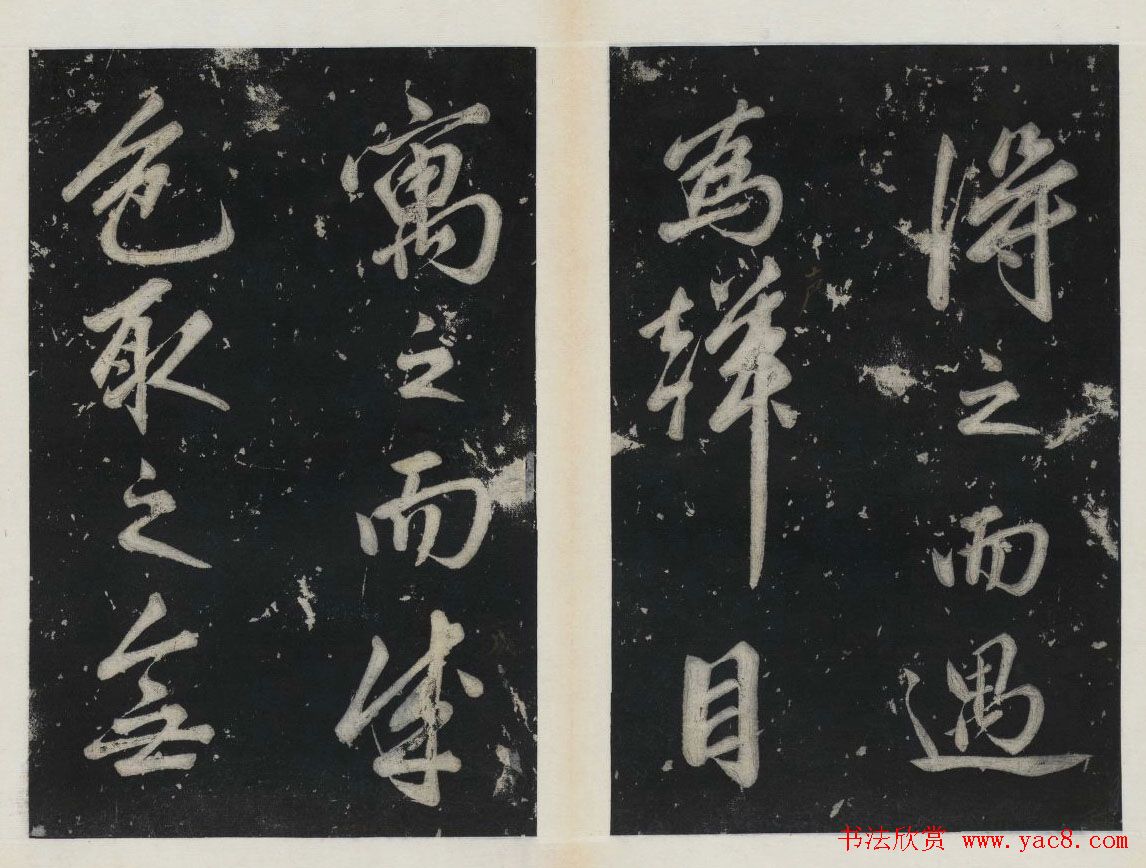 得之而遇
為聲目
寓之而成
色取之無
书法欣赏 www.yac8.com